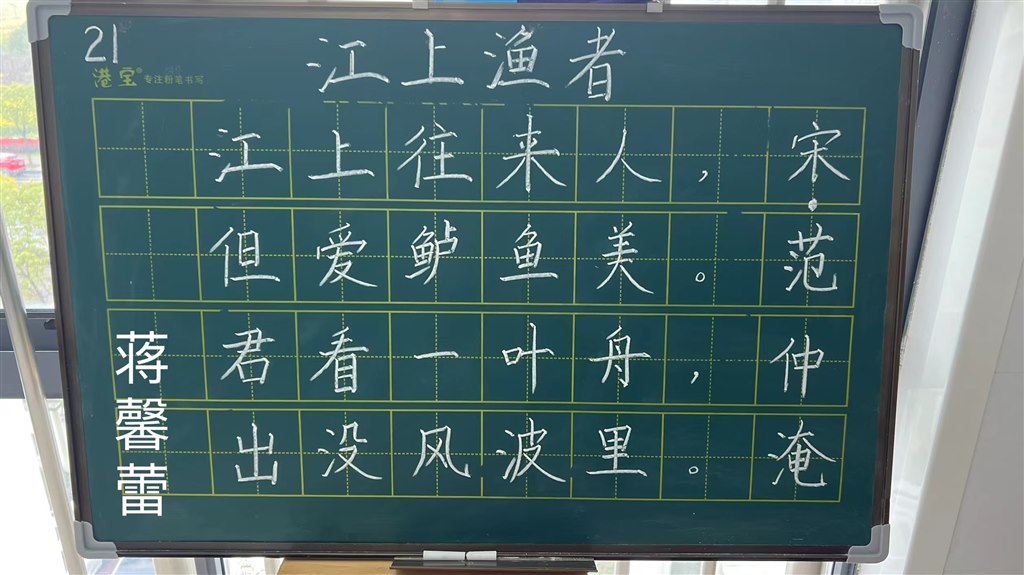 21
港宝® 专注粉笔书写
江上渔者
江上往来人，
但爱鲈鱼美。
君看一叶舟，
出没风波里。
宋·范仲淹
蒋馨蕾